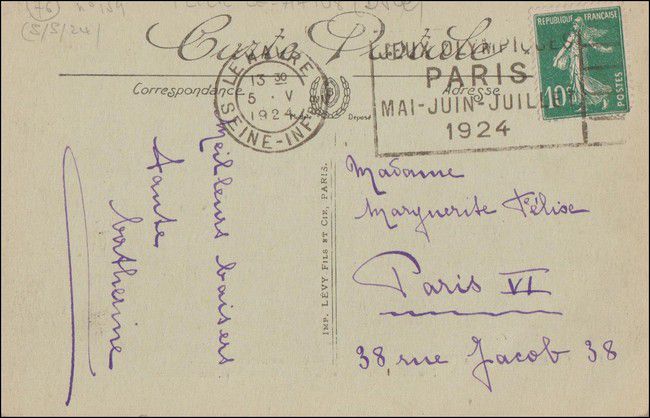 (76) n° 189
(5/5/24)
Carte Postale
Correspondance
Adresse
LE HAVRE
13 30
5 - V
1924
SEINE-INFRE
JEUX OLYMPIQUES
PARIS
MAI-JUIN-JUILLET
1924
REPUBLIQUE FRANÇAISE
10c
POSTES
Déposé
Meilleurs baisers
tante
Catherine
IMP. LÉVY FILS ET CIE, PARIS.
Madame
Marguerite Félise
Paris VI
38, rue Jacob 38